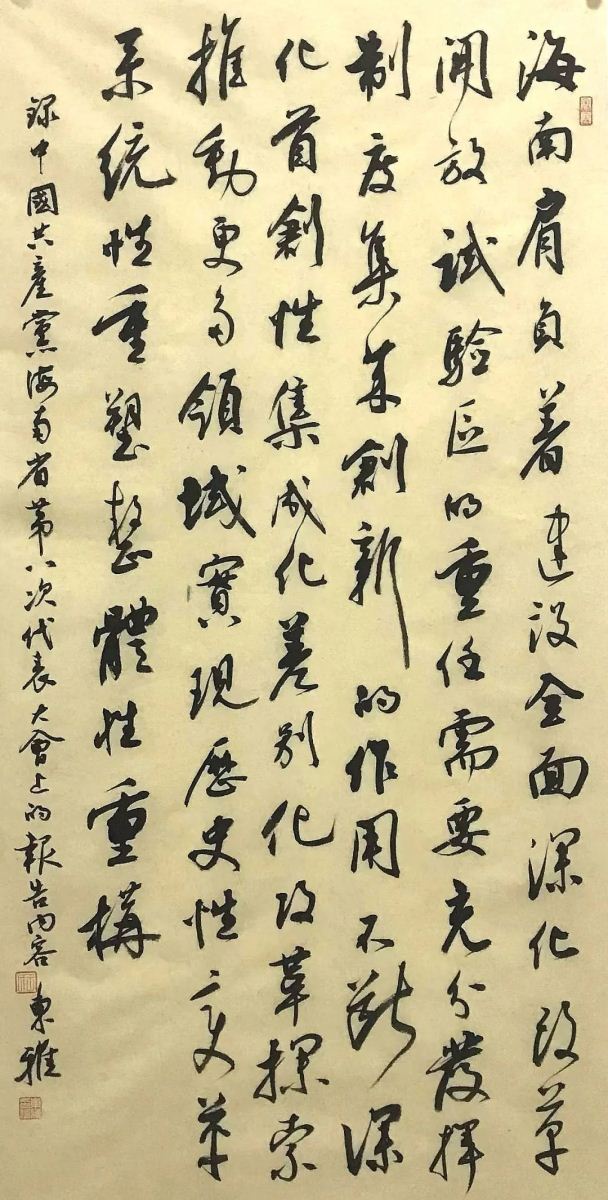 海南肩负着建设全面深化改革
開放試驗区的重任需要充分發揮
制度集成創新的作用不断深
化首創性集成化差别化改革探索
推動更多領域實現歷史性变革
系统性重塑整體性重構
録中國共産黨海南省第八次代表大會上的報告内容 東雅